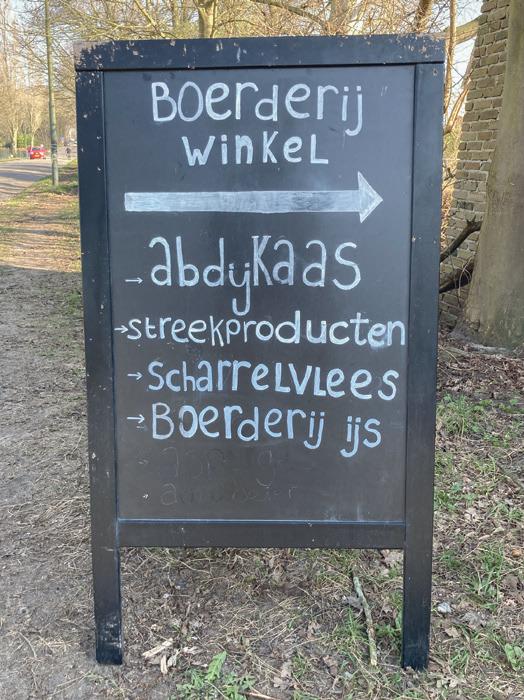 Boerderij
winkel
→
→ abdijkaas
→ streekproducten
→ Scharrelvlees
→ Boerderij ijs